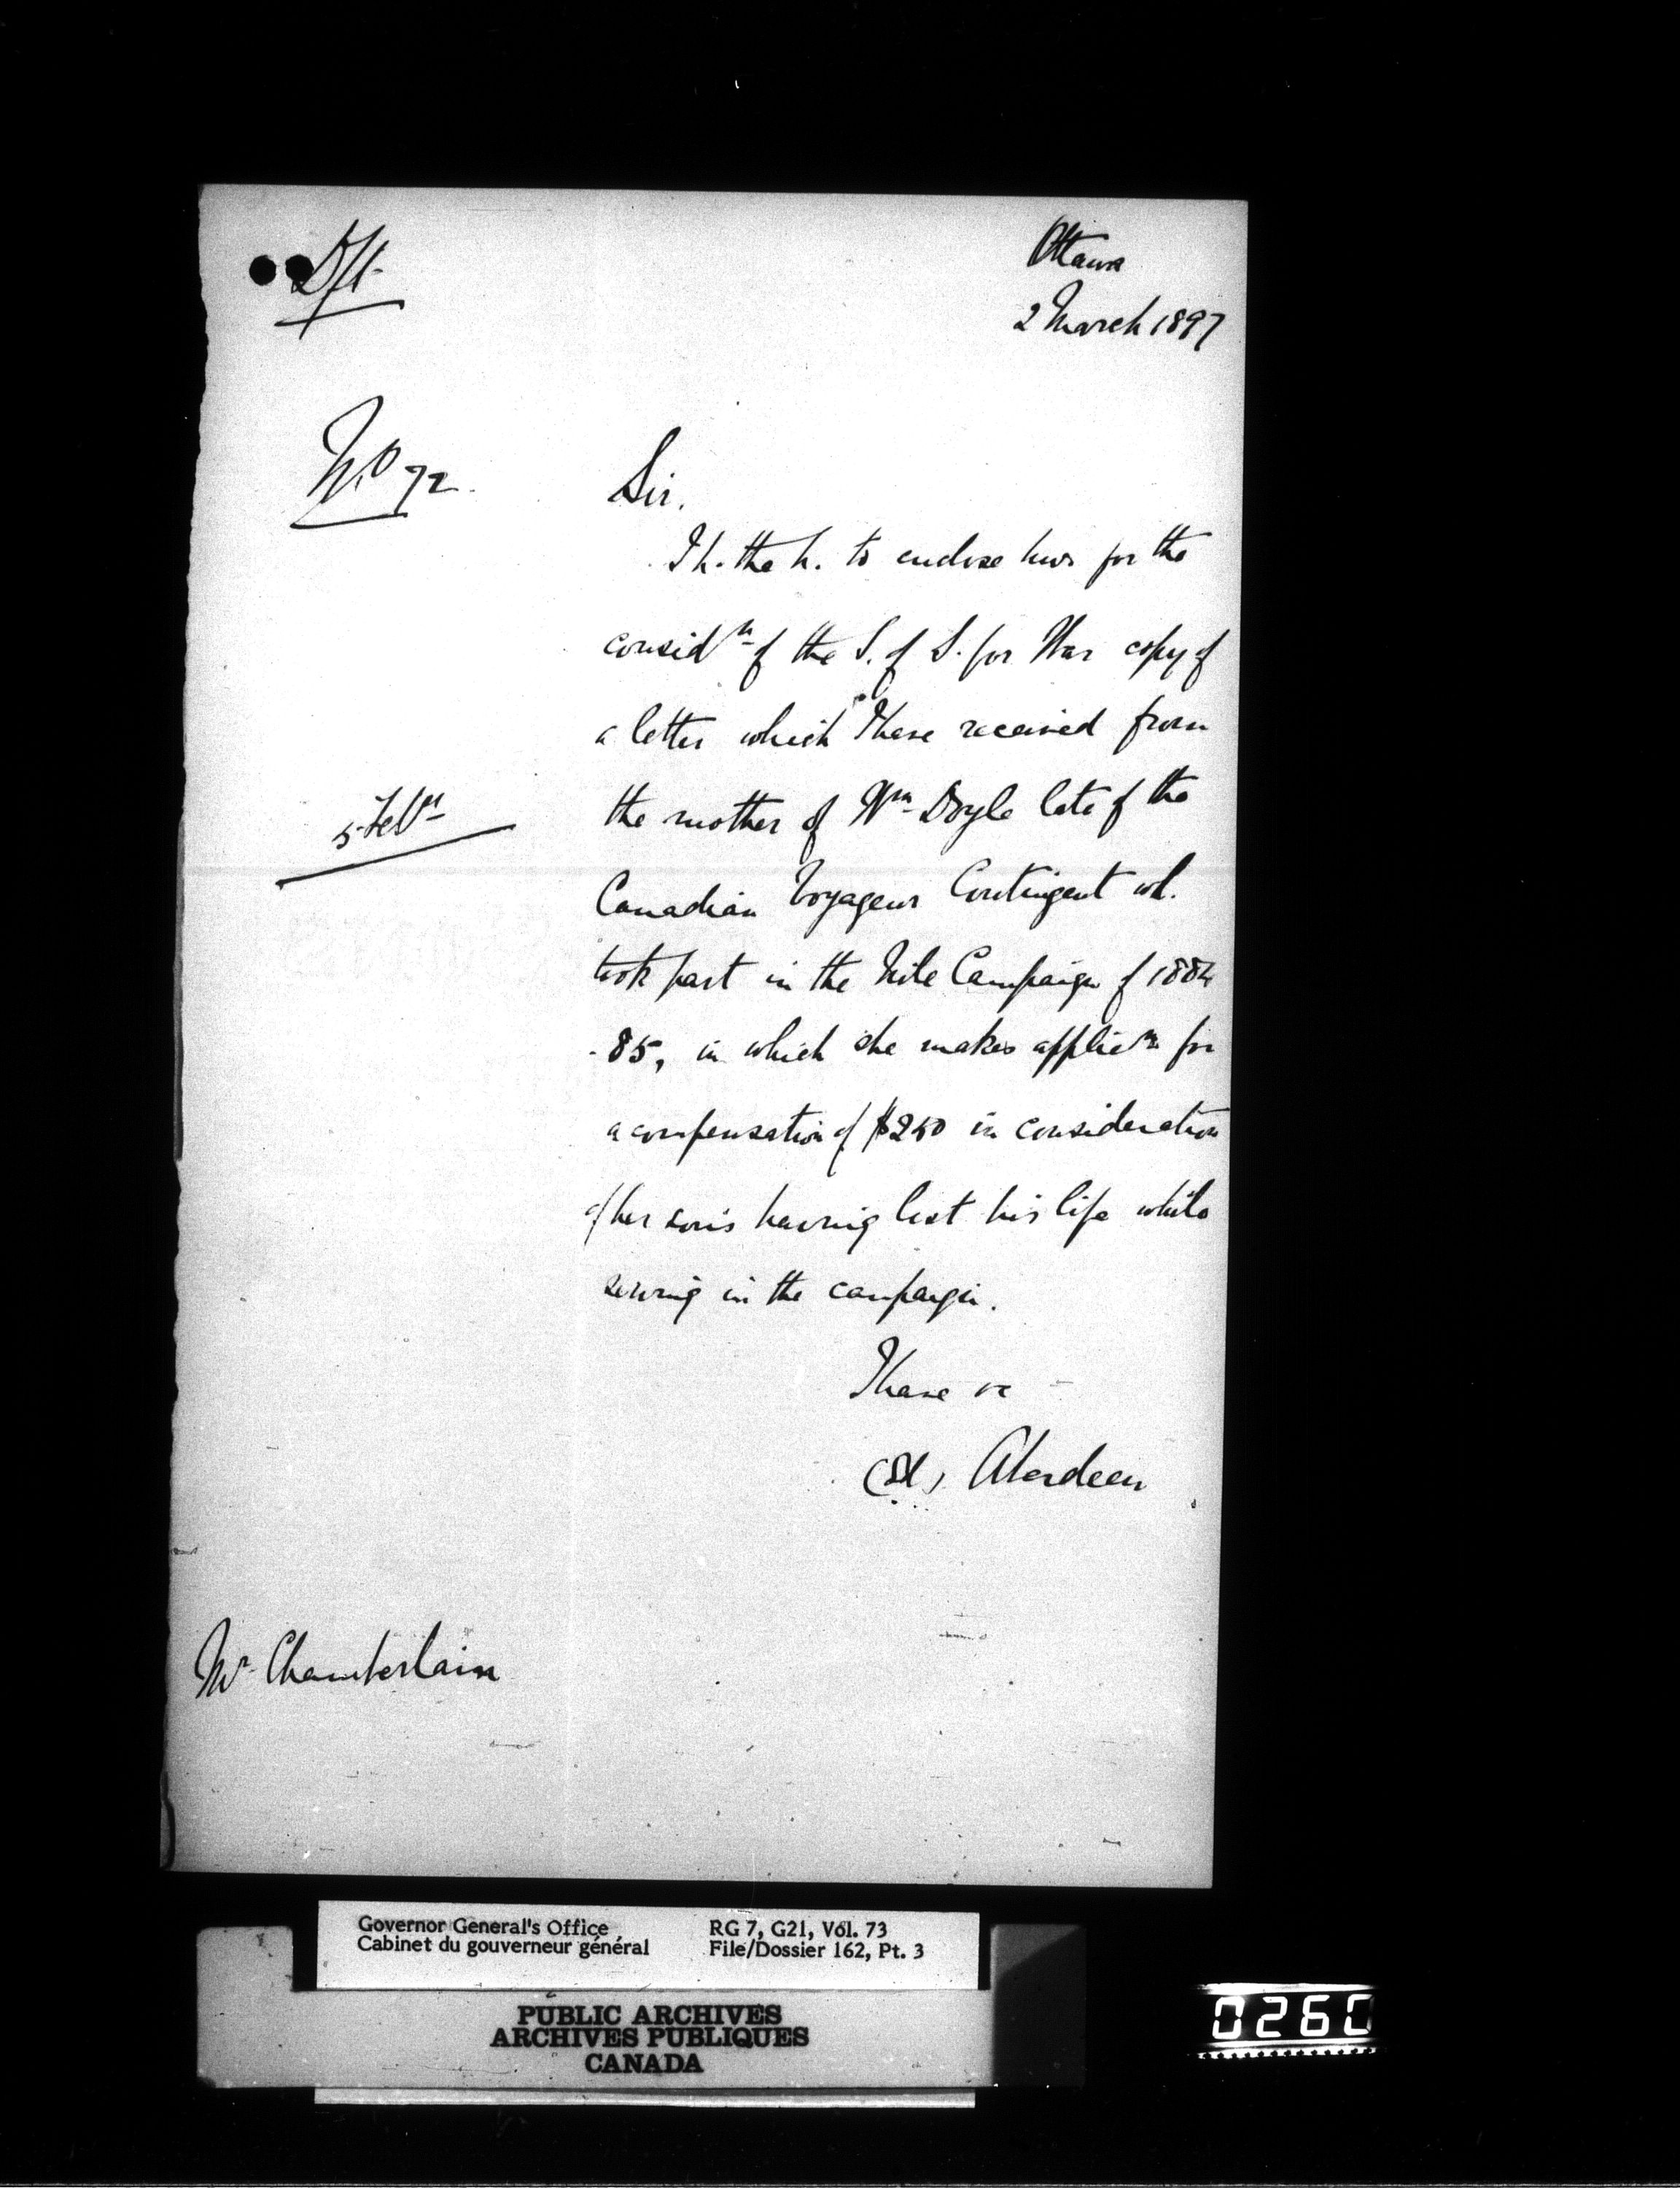 Dft.
Ottawa
2 March 1897
No 72.
Sir,
I h. the h. to enclose hws for the
considn of the S. of S. for War copy of
a letter which I have received from
5 Feby
the mother of Wm Doyle late of the
Canadian Voyageur Contingent wh.
took part in the Nile Campaign of 1884
-85, in which she makes applicn for
a compensation of $250 in consideration
of her son's having lost his life while
serving in the campaign.
I have &c
(Sd) Aberdeen
Mr Chamberlain
Governor General's Office
Cabinet du gouverneur général
RG 7, G21, Vol. 73
File/Dossier 162, Pt. 3
PUBLIC ARCHIVES
ARCHIVES PUBLIQUES
CANADA
0260